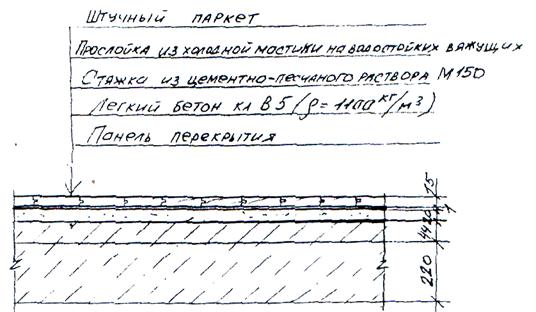 Штучный паркет
Прослойка из холодной мастики на водостойких вяжущих
Стяжка из цементно-песчаного раствора М150
Легкий бетон кл В5 (ρ=1100 кг/м³)
Панель перекрытия
15
20
44
220